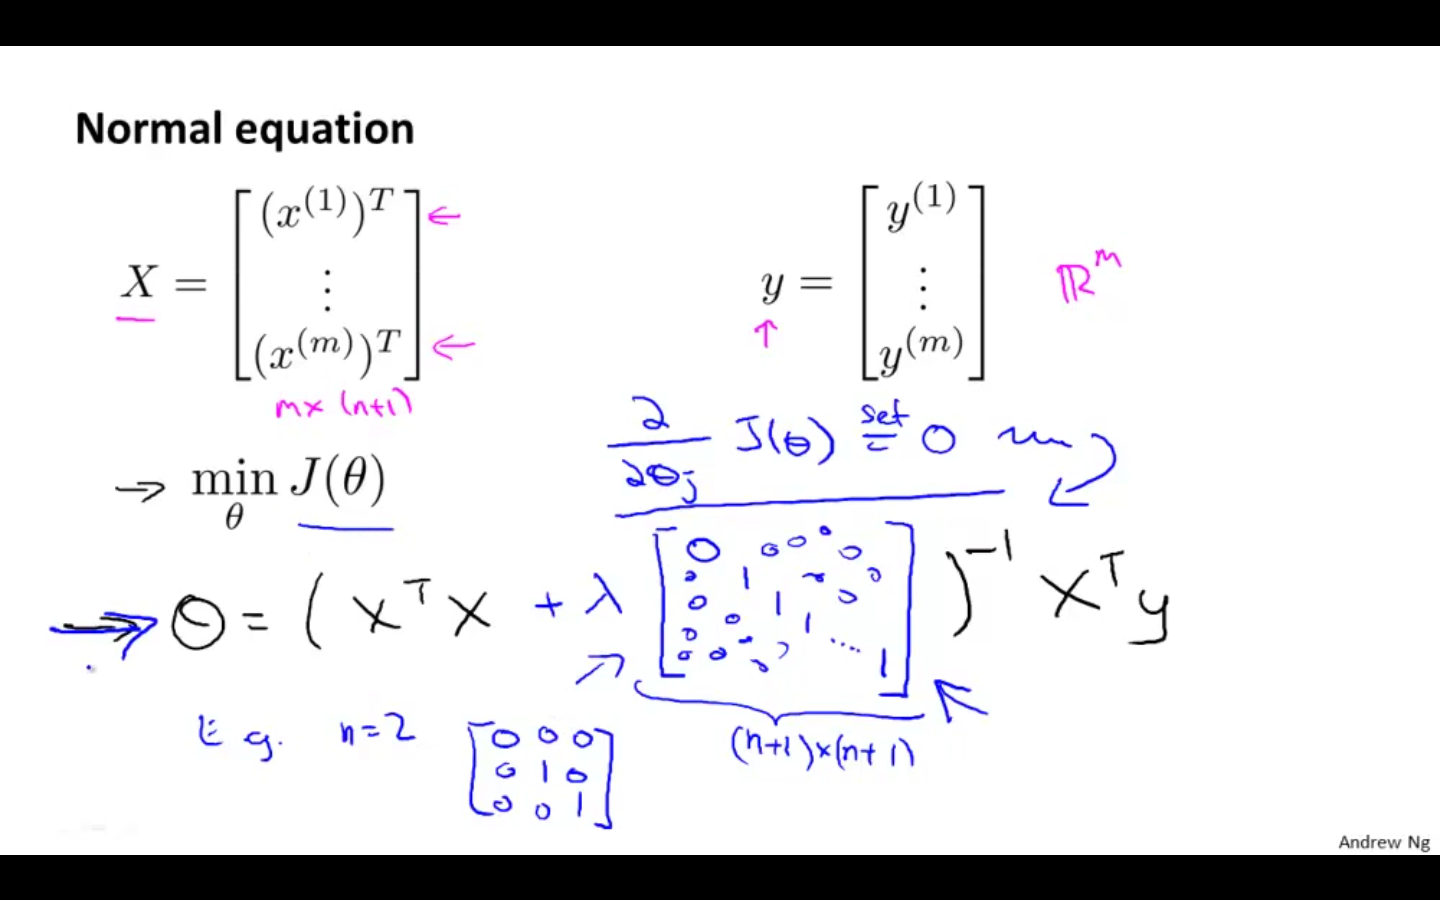 Normal equation
X = [ (x^(1))^T ⋮ (x^(m))^T ] ← ←
m x (n+1)
y = [ y^(1) ⋮ y^(m) ] ℝ^m
↑
∂/∂θj J(θ) set = 0
→ min_θ J(θ)
θ = ( X^T X + λ [ 0 0 0 0 0 1 0 1 0 0 1 0 0 ... 1 ] )^-1 X^T y
(n+1)x(n+1)
E.g. n=2 [ 0 0 0
0 1 0
0 0 1 ]
Andrew Ng